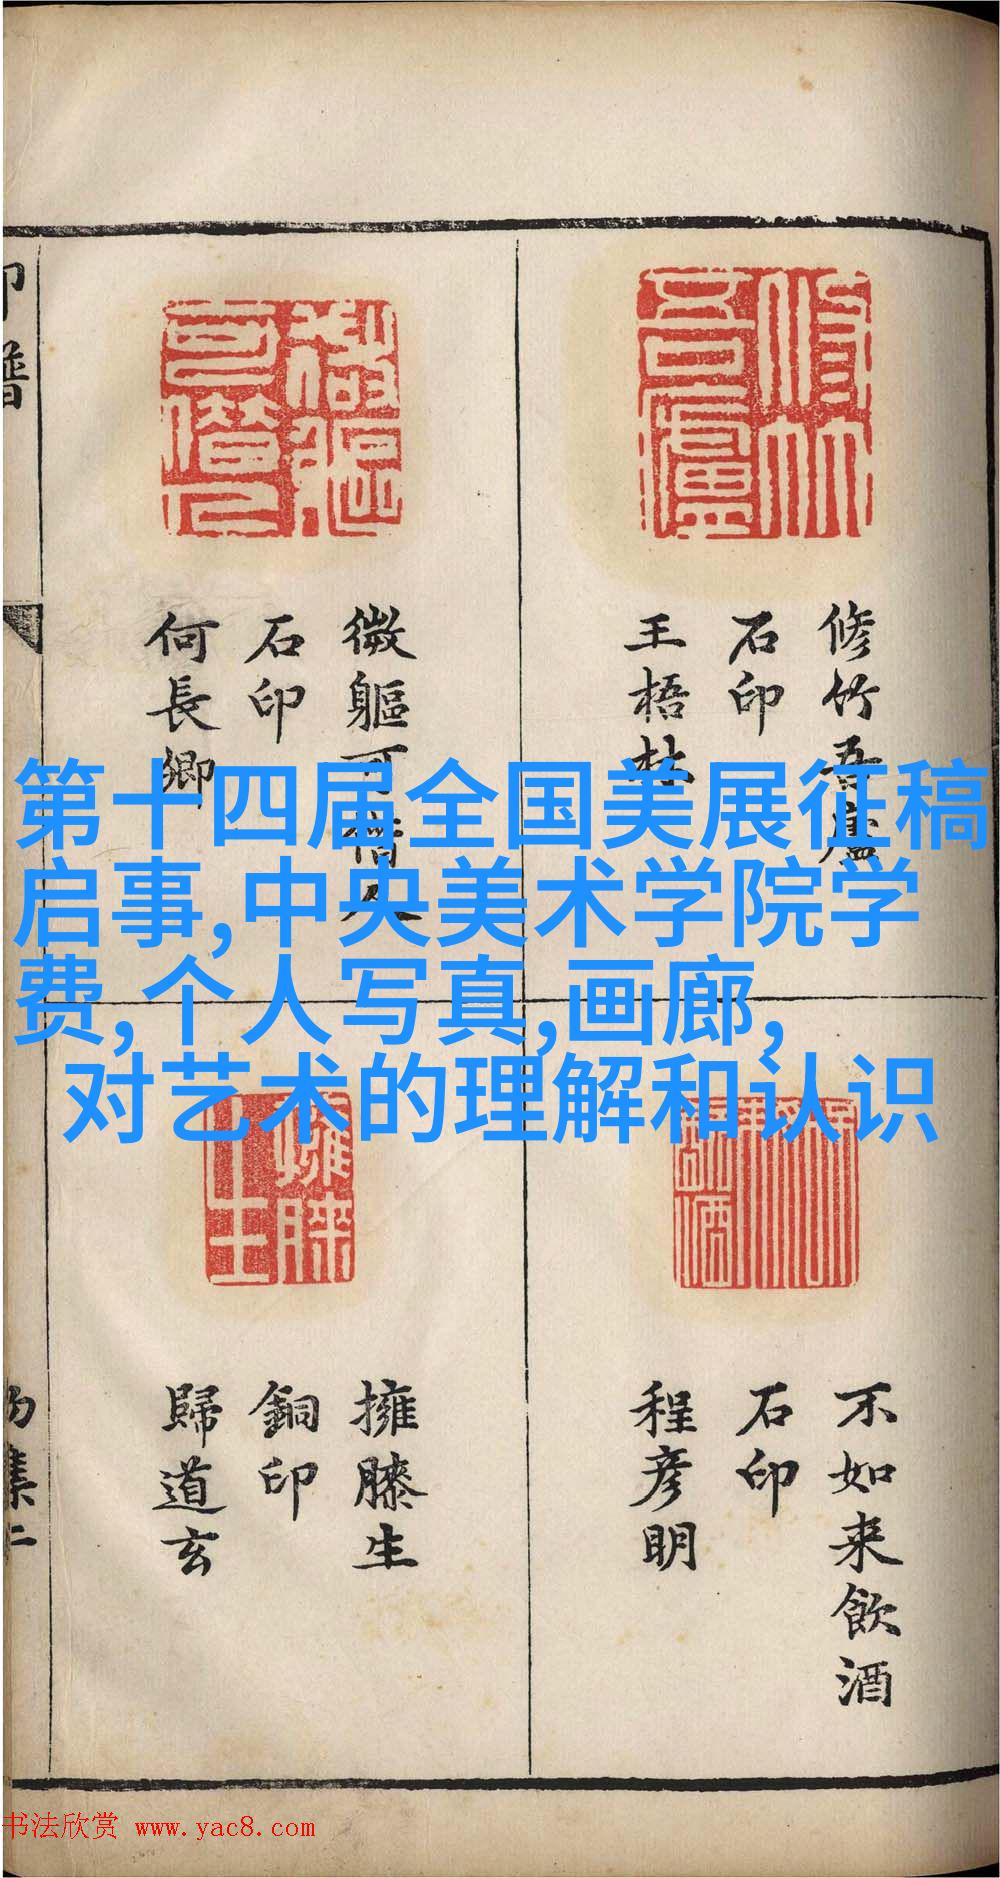 修竹吾廬
石印
王梧林
微軀可借人
石印
何長卿
第十四届全国美展征稿
启事,中央美术学院学
费,个人写真,画廊,
对艺术的理解和认识
不如来飲酒
石印
程彦明
擁膝生
銅印
歸道玄
印譜
初集二
书法欣赏 www.yac8.com